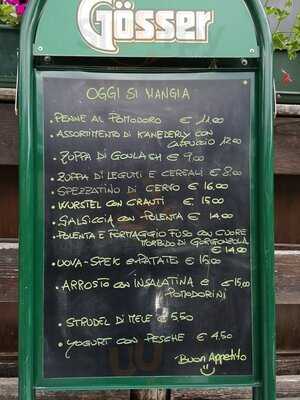 Gösser
OGGI SI MANGIA
• PENNE AL POMODORO € 11.00
• ASSORTIMENTO DI KANEDERLY CON
CAPPUCCIO 12.00
• ZUPPA DI GOULASH € 9,00
• ZUPPA DI LEGUMI E CEREALI € 8.00
• SPEZZATINO DI CERVO € 16,00
• WURSTEL CON CRAUTI € 15,00
• SALSICCIA CON POLENTA € 14.00
• POLENTA E FORMAGGIO FUSO CON CUORE
MORBIDO DI GORGONZOLA
€ 14.00
• UOVA-SPEK E PATATE € 16,00
• ARROSTO CON INSALATINA E €15,00
POMODORINI
• STRUDEL DI MELE € 5.50
• YOGURT CON PESCHE € 4.50
Buon Appetito